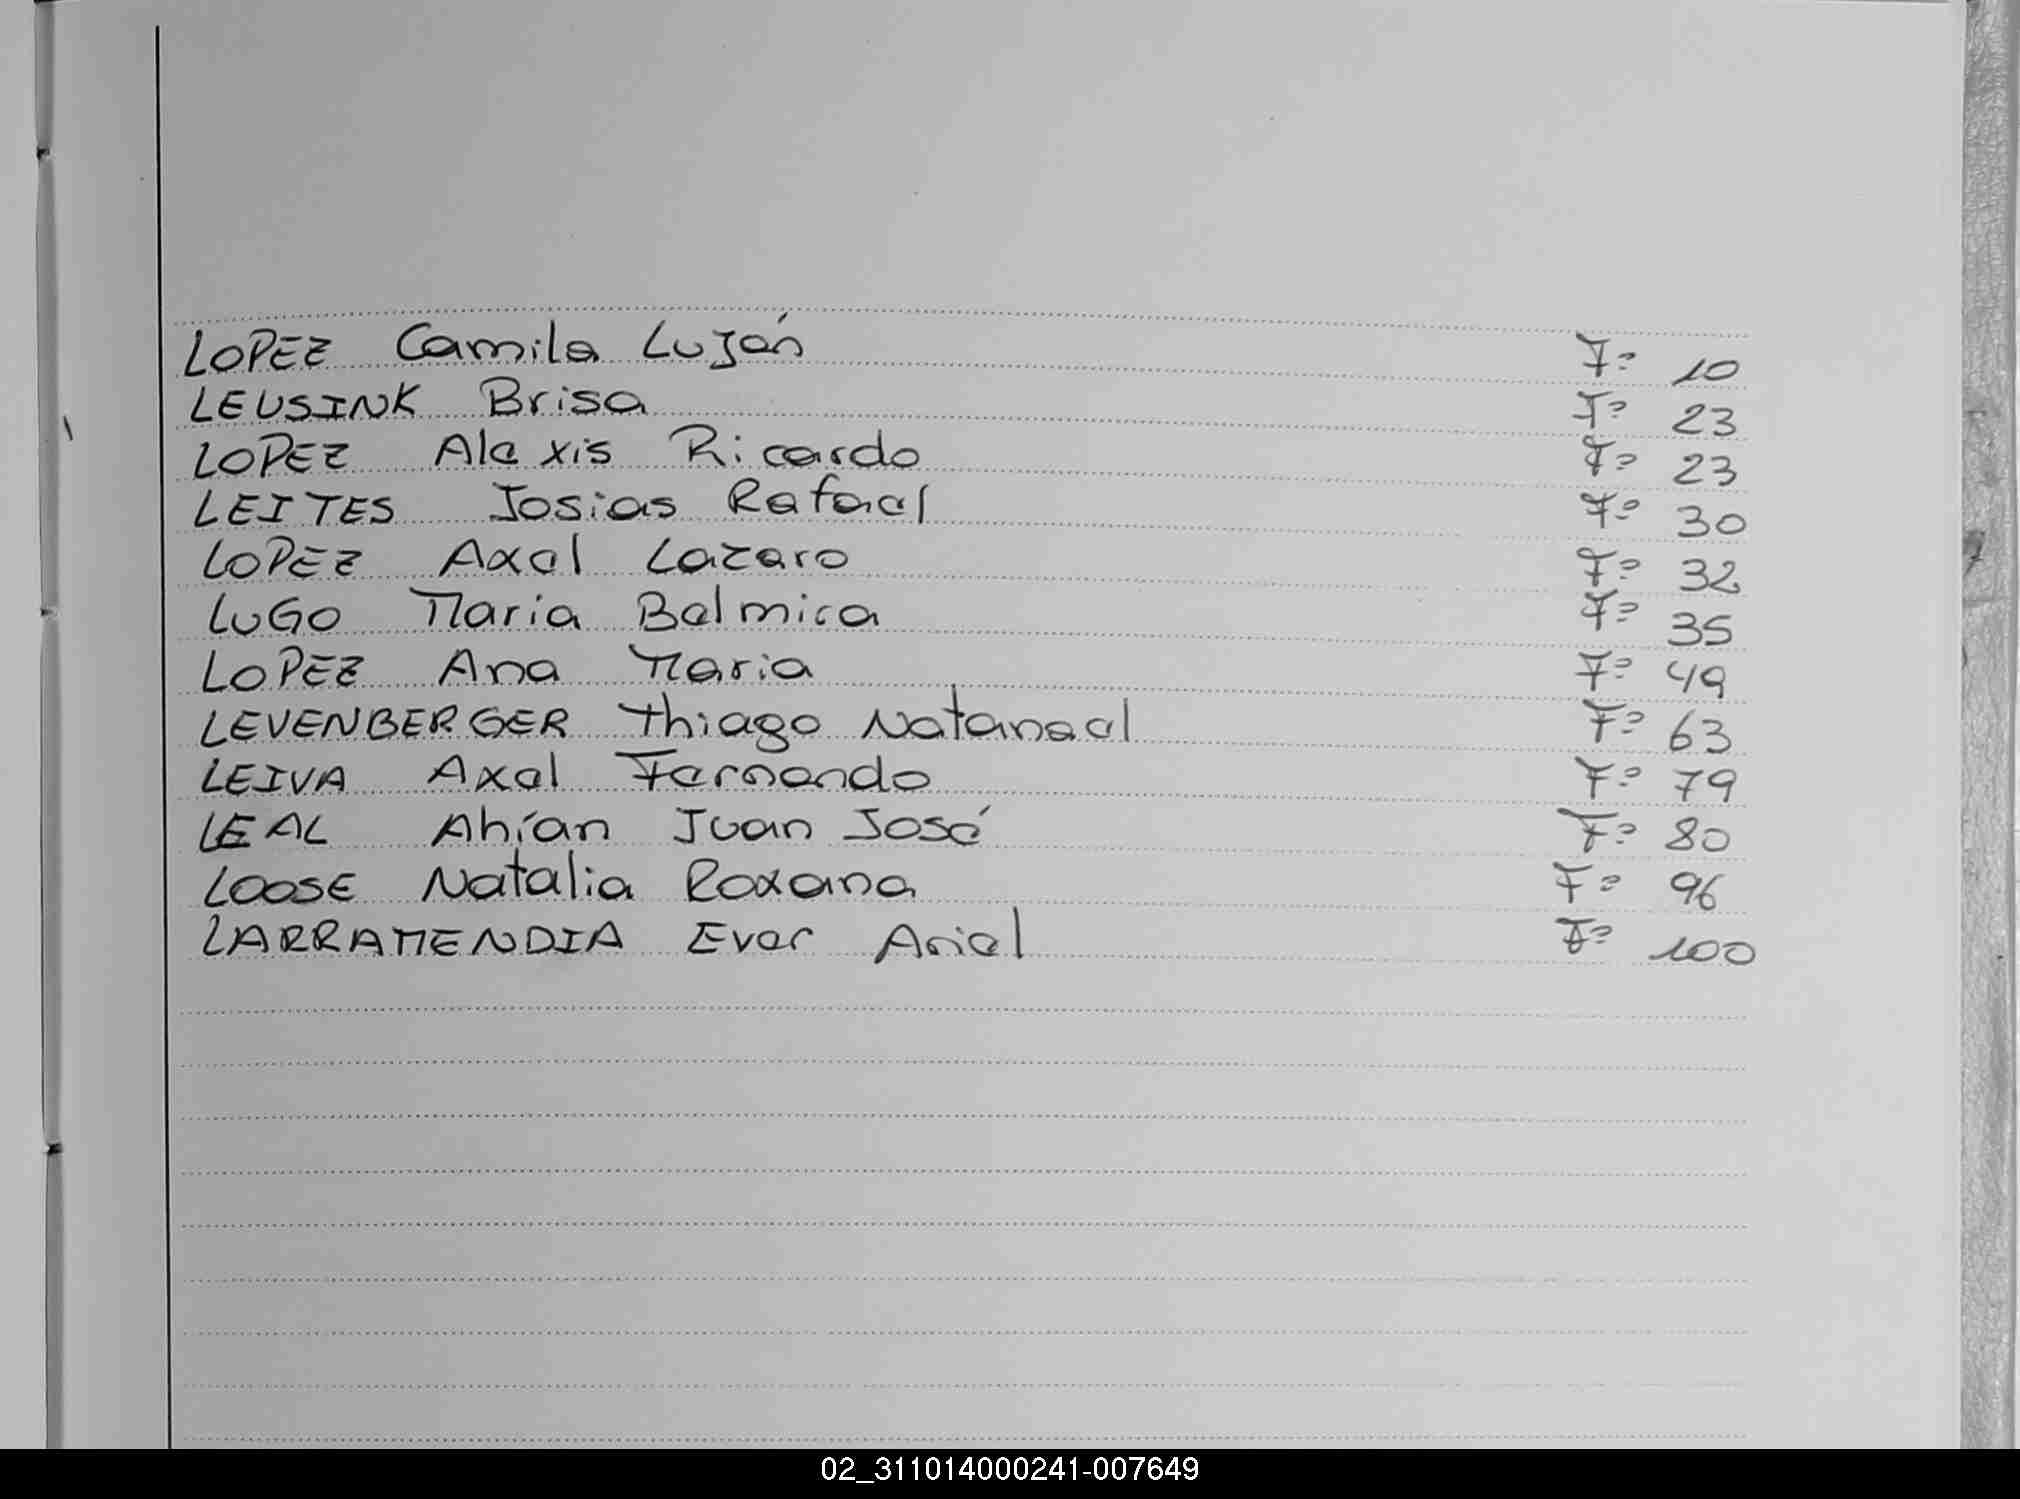 LOPEZ Camila Luján F° 10
LEUSINK Brisa F° 23
LOPEZ Alexis Ricardo F° 23
LEITES Josias Rafael F° 30
LOPEZ Axel Lazaro F° 32
LUGO Maria Belmira F° 35
LOPEZ Ana Maria F° 49
LEVENBERGER Thiago Natanael F° 63
LEIVA Axel Fernando F° 79
LEAL Ahían Juan José F° 80
LOOSE Natalia Roxana F° 96
LARRAMENDIA Ever Ariel F° 100
02_311014000241-007649